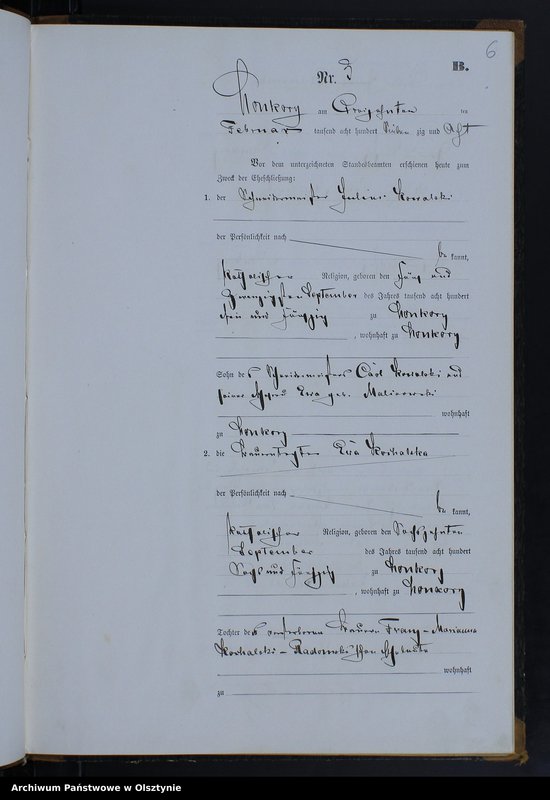 6
B.
Nr. 3
Honkory am Dreizehnten ten
Februar tausend acht hundert Sieben zig und Acht
Vor dem unterzeichneten Standesbeamten erschienen heute zum
Zweck der Eheschließung:
1. der Schneidermeister Julius Kowalski
der Persönlichkeit nach
be kannt,
katholischer Religion, geboren den fünf und
zwanzigsten September des Jahres tausend acht hundert
drei und fünfzig zu Honkory
, wohnhaft zu Honkory
Sohn des Schneidermeisters Carl Kowalski und
seiner Ehefrau Eva geb. Malinowski
wohnhaft
zu Honkory
2. die Bauerntochter Eva Kochalska
der Persönlichkeit nach
be kannt,
katholischer Religion, geboren den Sechszehnten
September des Jahres tausend acht hundert
Sechs und fünfzig zu Honkory
, wohnhaft zu Honkory
Tochter des verstorbenen Bauern Franz - Marianna
Kochalski - Radomski'schen Eheleute
wohnhaft
zu
Archiwum Państwowe w Olsztynie